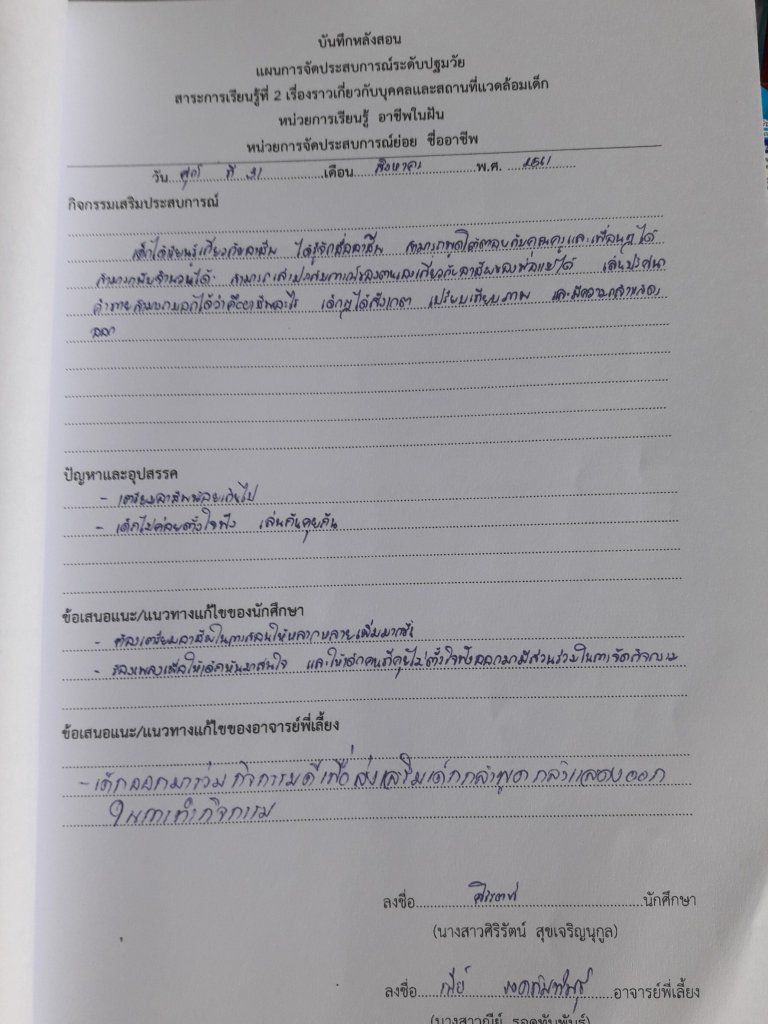 บันทึกหลังสอน
แผนการจัดประสบการณ์ระดับปฐมวัย
สาระการเรียนรู้ที่ 2 เรื่องราวเกี่ยวกับบุคคลและสถานที่แวดล้อมเด็ก
หน่วยการเรียนรู้ อาชีพในฝัน
หน่วยการจัดประสบการณ์ย่อย ชื่ออาชีพ
วัน ศุกร์ ที่ 31 เดือน สิงหาคม พ.ศ. 2561
กิจกรรมเสริมประสบการณ์
เด็กได้เรียนรู้เกี่ยวกับอาชีพ ได้รู้จักชื่ออาชีพ สามารถพูดโต้ตอบกับคุณครูและเพื่อนๆได้
สามารถนับจำนวนได้ สามารถเล่าประสบการณ์ของตนเองเกี่ยวกับอาชีพของพ่อแม่ได้ เล่นปริศนา
คำทายสามารถบอกได้ว่าคืออาชีพอะไร เด็กๆได้สังเกต เปรียบเทียบภาพ และมีความกล้าแสดง
ออก
ปัญหาและอุปสรรค
- เตรียมอาชีพน้อยเกินไป
- เด็กไม่ค่อยตั้งใจฟัง เล่นกันคุยกัน
ข้อเสนอแนะ/แนวทางแก้ไขของนักศึกษา
- ต้องเตรียมอาชีพในการสอนให้หลากหลายเพิ่มมากขึ้น
- ร้องเพลงเพื่อให้เด็กหันมาสนใจ และให้เด็กคนที่คุยไม่ตั้งใจฟังออกมามีส่วนร่วมในการจัดกิจกรรม
ข้อเสนอแนะ/แนวทางแก้ไขของอาจารย์พี่เลี้ยง
- เด็กออกมาร่วมกิจกรรมดีเพื่อส่งเสริมเด็กกล้าพูดกล้าแสดงออก
ในการทำกิจกรรม
ลงชื่อ ศิริรัตน์ นักศึกษา
(นางสาวศิริรัตน์ สุขเจริญนุกูล)
ลงชื่อ อาจารย์พี่เลี้ยง
(นางสาวณีย์ รอดทับพันธุ์)